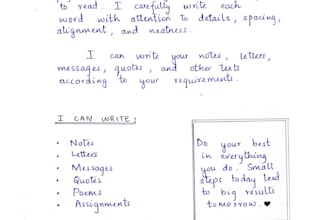 to read. I carefully write each
word with attention to details, spacing,
alignment, and neatness.
I can write your notes, letters,
messages, quotes, and other texts
according to your requirements.
I CAN WRITE:
• Notes
• Letters
• Messages
• Quotes
• Poems
• Assignments
Do your best
in everything
you do. Small
steps today lead
to big results
tomorrow. ♥